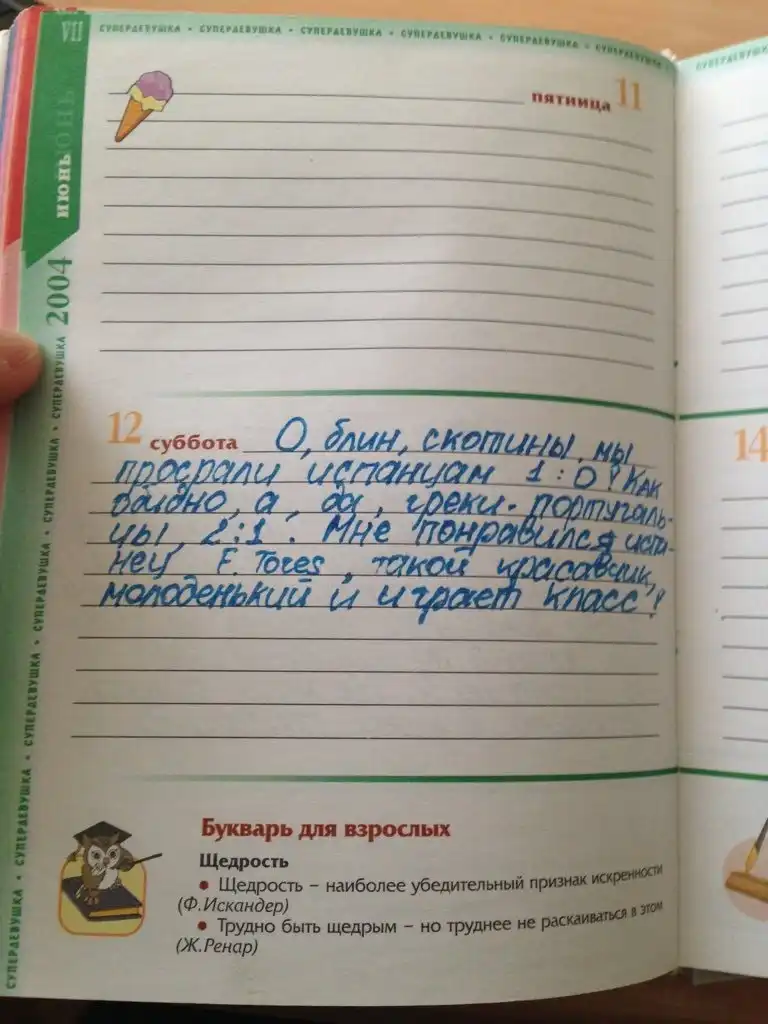 VII СУПЕРДЕВУШКА • СУПЕРДЕВУШКА • СУПЕРДЕВУШКА • СУПЕРДЕВУШКА • СУПЕРДЕВУШКА • СУПЕРДЕВУШКА
СУПЕРДЕВУШКА
июнь
2004
СУПЕРДЕВУШКА • СУПЕРДЕВУШКА • СУПЕРДЕВУШКА • СУПЕРДЕВУШКА • СУПЕРДЕВУШКА • СУПЕРДЕВУШКА
пятница 11
12 суббота О, блин, скотины, мы
просрали испанцам 1:0! Как
обидно, а, да, греки - португаль-
цы, 2:1. Мне понравился испа-
нец F. Tores, такой красавчик,
молоденький и играет класс!
14
Букварь для взрослых
Щедрость
• Щедрость – наиболее убедительный признак искренности
(Ф.Искандер)
• Трудно быть щедрым – но труднее не раскаиваться в этом
(Ж.Ренар)